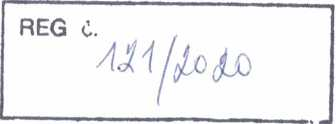 REG č.
121/2020